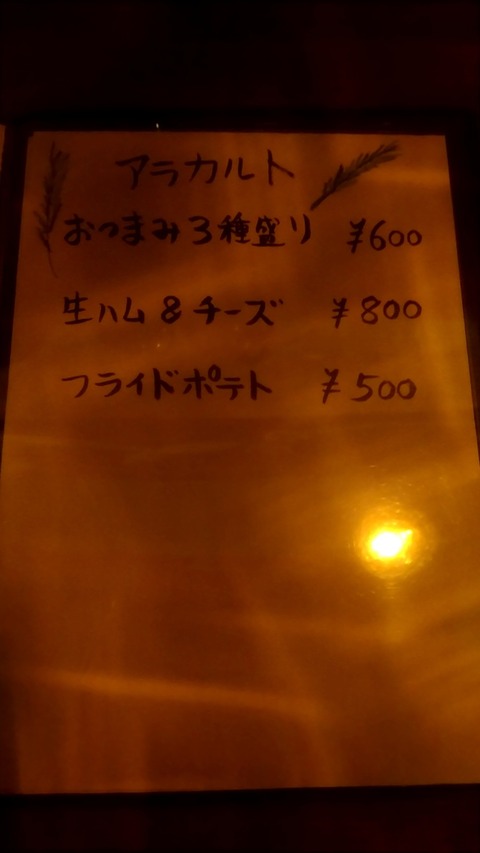 アラカルト
おつまみ3種盛り ¥600
生ハム&チーズ ¥800
フライドポテト ¥500